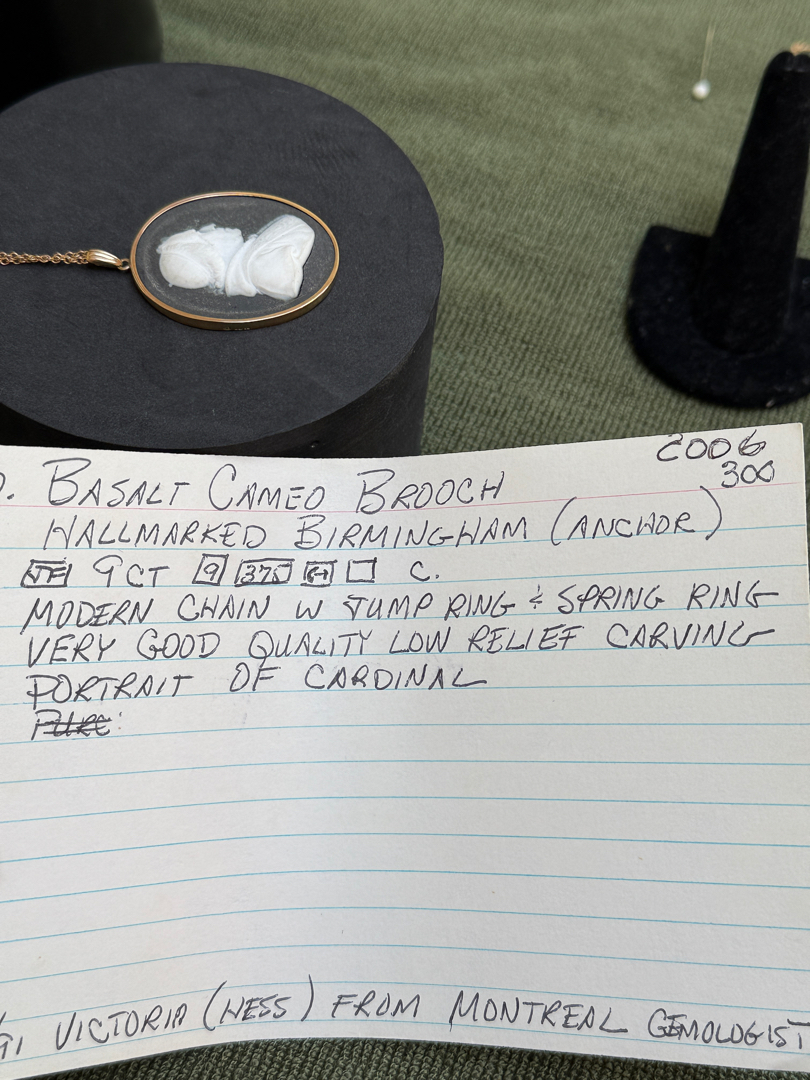 2006
300
. BASALT CAMEO BROOCH
HALLMARKED BIRMINGHAM (ANCHOR)
9 CT 9 375 C.
MODERN CHAIN W JUMP RING & SPRING RING
VERY GOOD QUALITY LOW RELIEF CARVING
PORTRAIT OF CARDINAL
VICTORIA (NESS) FROM MONTREAL GEMOLOGIST